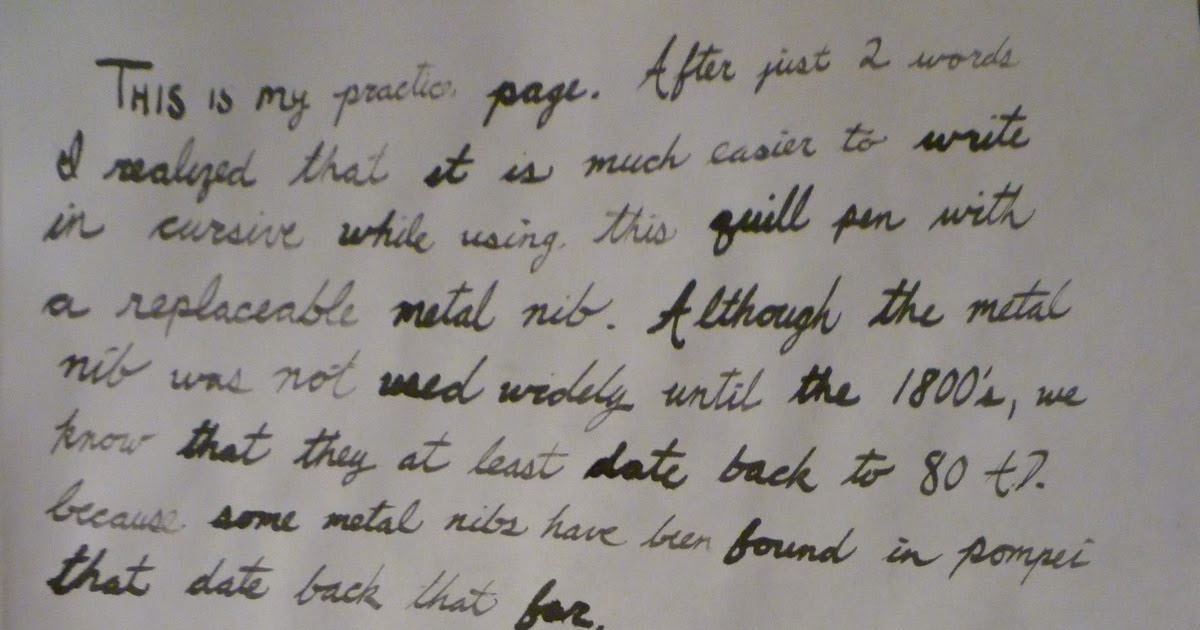 This is my practice page. After just 2 words
I realized that it is much easier to write
in cursive while using this quill pen with
a replaceable metal nib. Although the metal
nib was not used widely until the 1800's, we
know that they at least date back to 80
because some metal nibs have been found in pompei
that date back that far.